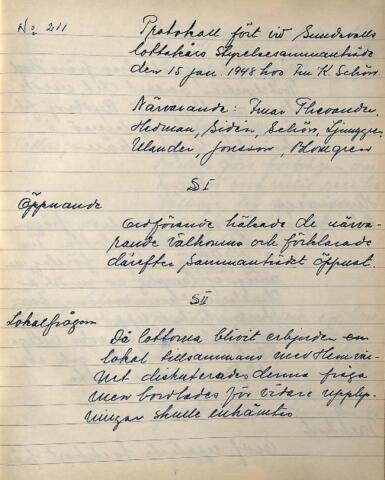 No 211
Protokoll fört vid Sundsvalls
lottakårs styrelsesammanträde
den 15 jan. 1948 hos Fru K. Schörs.
Närvarande: Fruar Thevander,
Hedman, Sidén, Schörs, Ljunggren
Ulander, Jonsson, Blomgren
§ I
Öppnande
Ordförande hälsade de närva-
rande välkomna och förklarade
därefter sammanträdet öppnat.
§ II
Lokalfrågan
Då lottorna blivit erbjuden en
lokal tillsammans med Hemvär-
net diskuterades denna fråga
men bordlades för vidare upplys-
ningar skulle inhämtas